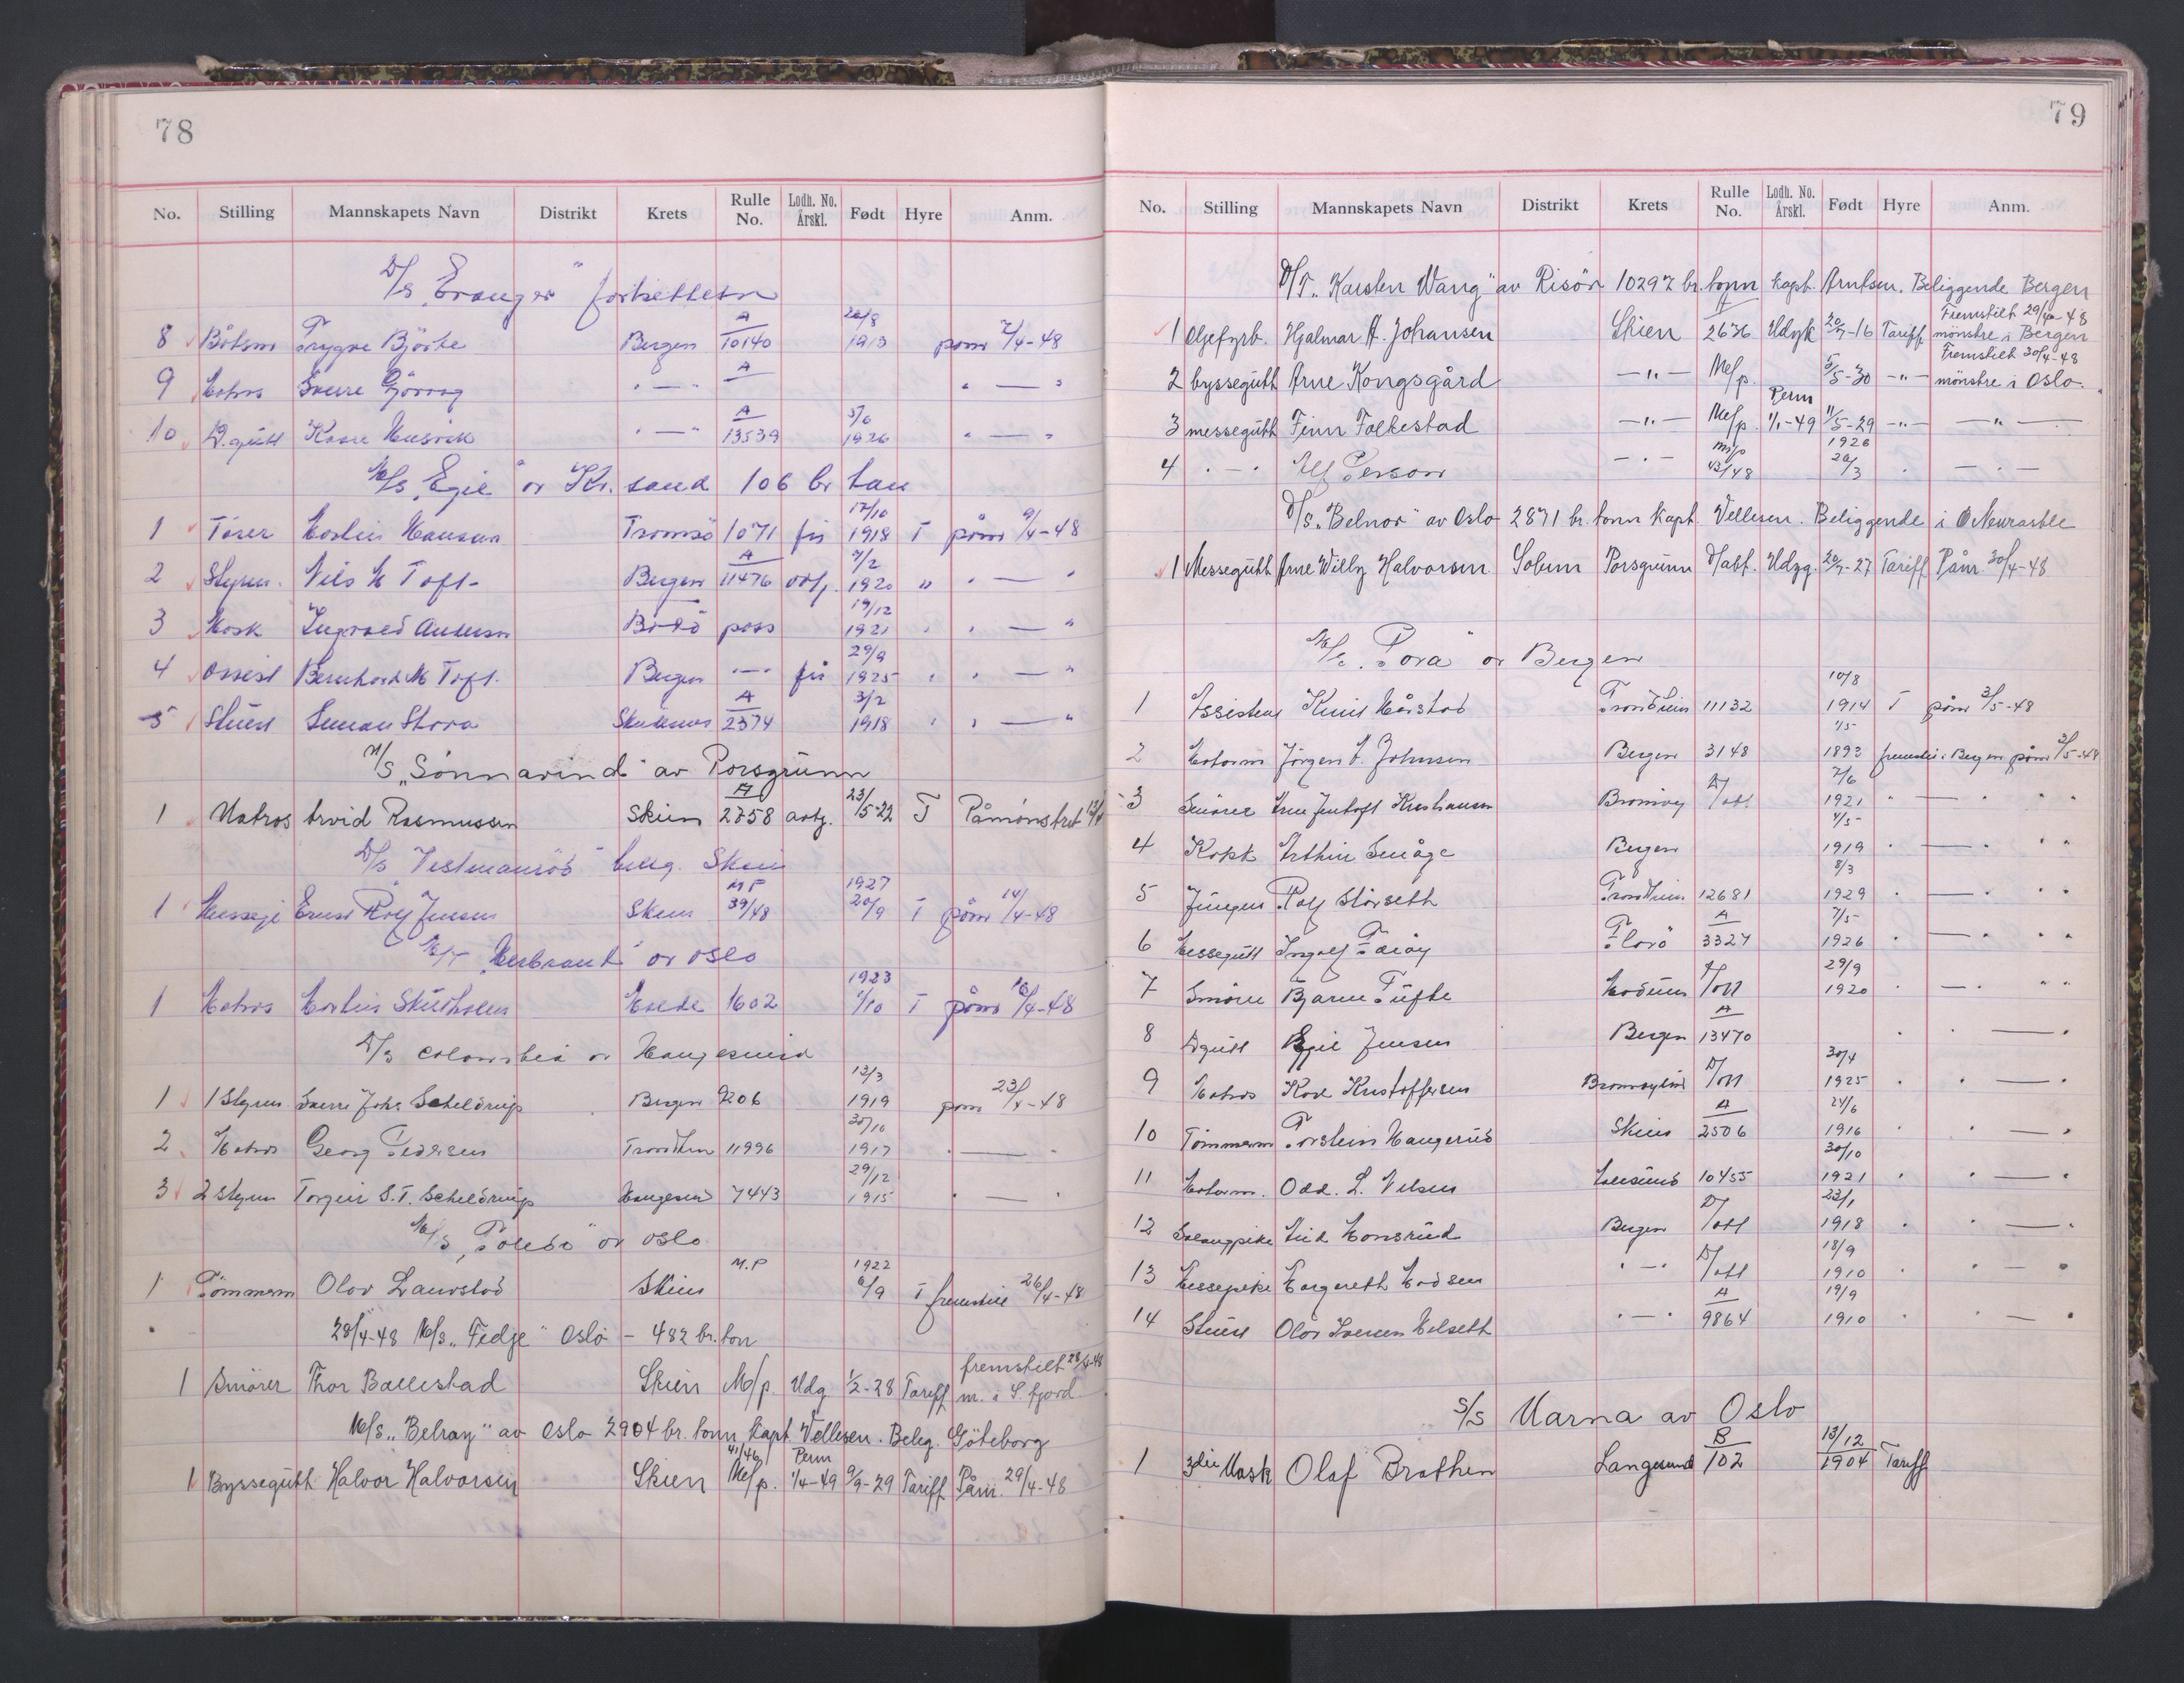 78
No. Stilling Mannskapets Navn Distrikt Krets Rulle No. Lodh. No. Årskl. Født Hyre Anm.
D/S „Eranger" fortsettelse
8 Båtsm Trygve Björke Bergen A 10140 20/8 1913 påm 7/4-48
9 Matros Sverre Bergen A " — "
10 D.gutt Kaare A 13539 5/6 1926 " — "
M/S „Egil" av Kr.sand 106 br ton
1 Martin Hansen Tromsö 1071 fis 17/10 1918 T påm 9/4-48
2 Styrm. Nils M Toft Bergen A 11476 7/2 1920 " " — "
3 Mask Ingvald Andersen Bodö pass 19/12 1921 " " — "
4 Assist Bernhard M Toft. Bergen —"— fis 29/9 1925 " " — "
5 Stuert A 2374 3/2 1918 " " — "
M/S „Sönnavind" av Porsgrunn
1 Matros Arvid Rasmussen Skien A 2758 23/5-22 T Påmönstret 13/4
D/S „Vestmanröd" belig. Skien
1 Messegj Ernst Rolf Jensen Skien MP 39/48 1927 20/9 T påm 14/4-48
M/T „Herbrand" av Oslo
1 Matros Martin Skutholm Molde 1602 1923 1/10 T påm 16/4-48
D/S Colombia av Haugesund
1 1 Styrm Sverre Johs Scheldrup Bergen 9206 13/3 1919 påm 23/4-48
2 Matros Georg Pedersen Trondhm 11996 30/10 1917 " — "
3 2 Styrm Torgeir S.T. Scheldrup Haugesund 7443 29/12 1915 " — "
M/S „Toledo" av Oslo
1 Tömmerm Olav Laurstad Skien M.P 1922 6/9 T fremstill 26/4-48
28/4-48 M/S „Fedje" Oslo - 482 br. ton
1 Smörer Thor Ballestad Skien M/p. Udg 1/2-28 Tariff fremstilt 28/4-48 m. i S.fjord.
M/S „Belray" av Oslo 2904 br. tonn Kapt. Vellesen. Belig. Göteborg
1 Byssegutt Halvor Halvorsen Skien 41/46 M/p. Perm 1/4-49 9/9-29 Tariff Påm. 29/4-48
79
No. Stilling Mannskapets Navn Distrikt Krets Rulle No. Lodh. No. Årskl. Født Hyre Anm.
D/T „Karsten Wang" av Risör 10297 br. tonn Kapt. Arntsen. Beliggende Bergen
1 Oljefyrb. Hjalmar A. Johansen Skien A 2636 Udyk 20/7-16 Tariff Fremstilt 29/4-48 mönstre i Bergen
2 byssegutt Arne Kongsgård —"— M/p. 5/5-30 —"— Fremstilt 30/4-48 mönstre i Oslo.
3 messegutt Finn Folkestad —"— M/p. Perm 1/1-49 11/5-29 —"— —"—
4 " — " Alf Person — " — M/p 43/48 1928 20/3 " — " —
D/S „Belnor" av Oslo 2871 br. tonn Kapt. Vellesen. Beliggende i Newcastle
1 Messegutt Arne Willy Halvorsen Solum Porsgrunn D/att. Udyg. 20/7-27 Tariff Påm. 30/4-48
M/S. „Tora" av Bergen
1 Assistent Knut Hårstad Trondheim 11132 10/8 1914 T påm 3/5-48
2 Motorm Jörgen V. Johnsen Bergen 3148 1/5 1893 fremstil i Bergen påm 3/5-48
3 Smörer Arne Jentoft Kristiansen Brönnöy D/att 7/6 1921 " — " " "
4 Kokk Arthur Småge Bergen 4/5 1919 " — " " "
5 Jungm Rolf Störseth Trondheim 12681 8/3 1929 " — " " "
6 Messegutt Ingolf Flora A 3327 7/5 1926 " — " " "
7 Smörer Bjarne Tufte Modum D/att 29/9 1920 " — " " "
8 Dgutt Egil Jensen Bergen A 13470 " " — "
9 Matros Kåre Kristoffersen Brönnöysund D/att 30/4 1925 " " — "
10 Tömmerm Torstein Haugerud Skien A 2506 24/6 1916 " " — "
11 Motorm. Odd. L. Nilsen Aalesund 10455 30/10 1921 " " — "
12 Salongpike Aud Monsrud Bergen D/att 22/1 1918 " " — "
13 Messepike Margareth Madsen " — " D/att 18/9 1910 " " — "
14 Stuert Olav Iversen Melseth " — " A 9864 19/9 1910 " " — "
S/S Varna av Oslo
1 3die Mask Olaf Brathen Langesund B 102 13/12 1904 Tariff